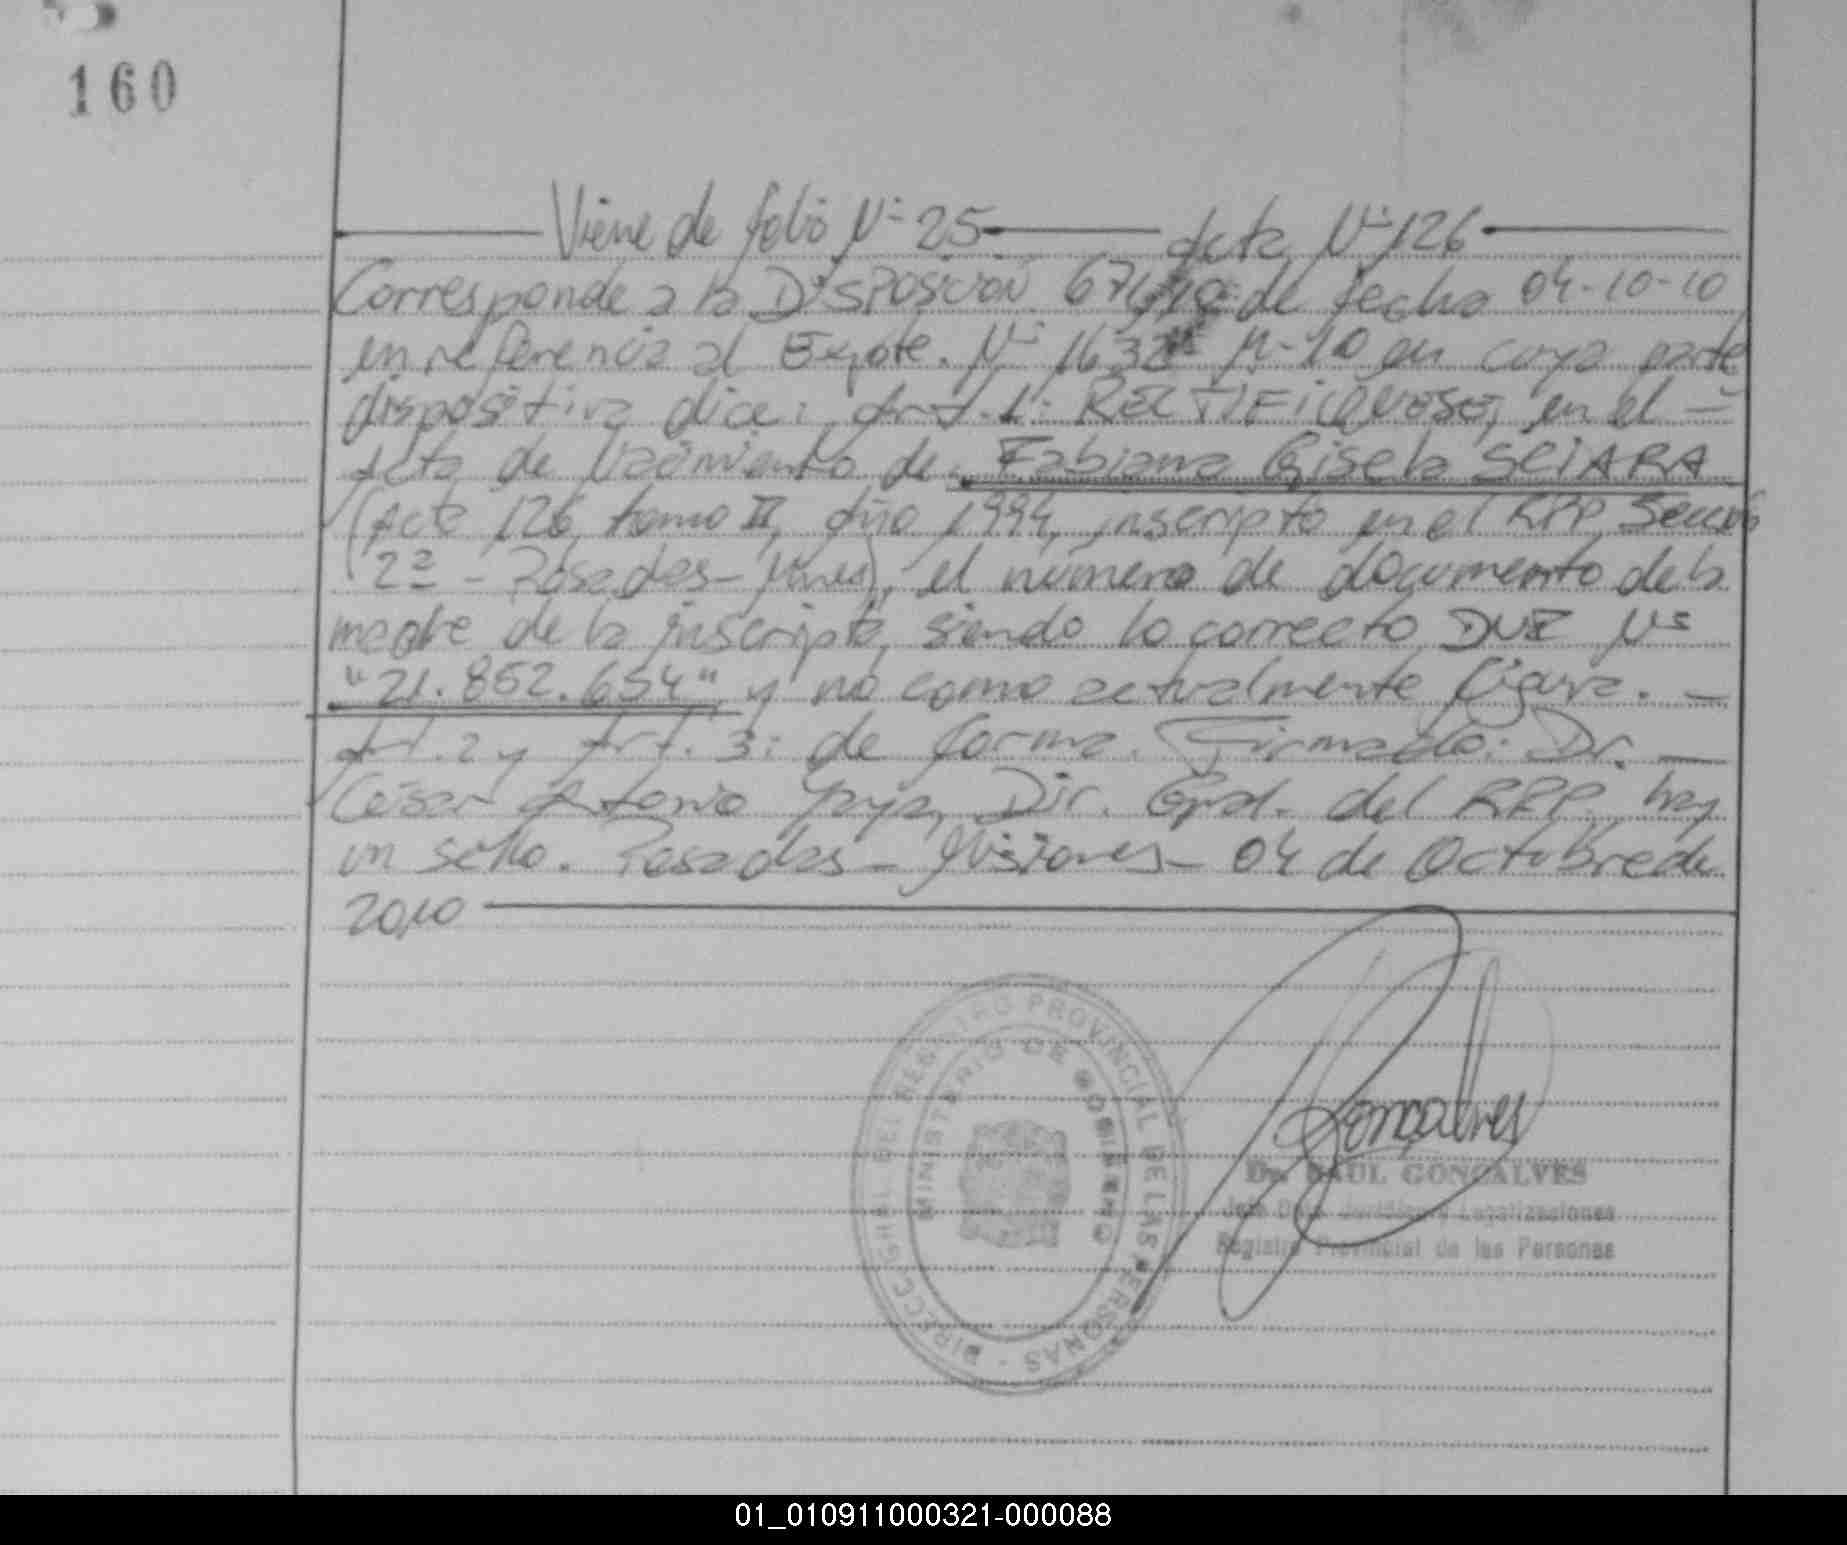 160
Viene de folio Nº 25 Acta Nº 126
Corresponde a la DISPOSICION de fecha 04-10-10
en referencia al Expte. Nº en cuya parte
dispositiva dice: Art. 1: RECTIFIQUESE, en el
Acta de Nacimiento de Fabiana Gisela SCIARA
(Acta 126, tomo II, Año 1994, inscripta en el RPP Sección
2ª - Posadas - Mnes), el número de documento de la
madre de la inscripta, siendo lo correcto DNI Nº
"21.852.654" y no como actualmente figura.
Art. 2 y Art. 3: de forma. Firmado: Dr.
César Antonio Yaya, Dir. Gral. del RPP. hay
un sello. Posadas - Misiones - 04 de Octubre de
2010
DIRECC. GRAL DEL REGISTRO PROVINCIAL DE LAS PERSONAS
MINISTERIO DE GOBIERNO
Gonçalves
Dr. RAUL GONCALVES
Jefe Dpto. Jurídico y Legalizaciones
Registro Provincial de las Personas
01_010911000321-000088